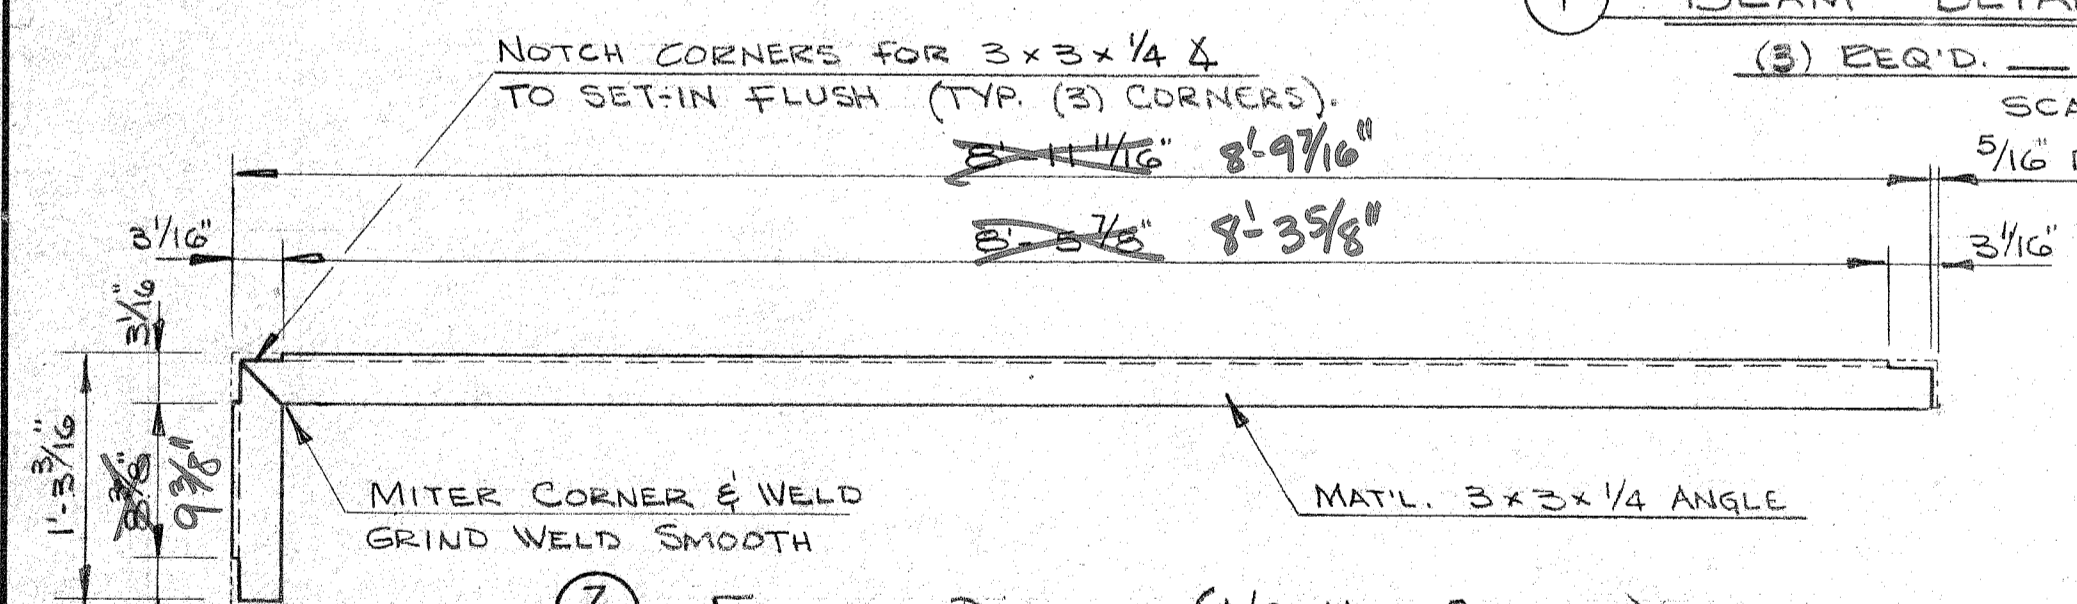 1 BEAM DETA
(3) REQ'D.
SCA
NOTCH CORNERS FOR 3 x 3 x 1/4 ∡
TO SET-IN FLUSH (TYP. (3) CORNERS).
8'-11 11/16" 8'-9 7/16"
5/16"
8'-5 7/8" 8'-3 5/8"
3 1/16"
3 1/16"
3 1/16"
1'-3 3/16"
8 3/8"
9 3/8"
MITER CORNER & WELD
GRIND WELD SMOOTH
MAT'L. 3 x 3 x 1/4 ANGLE